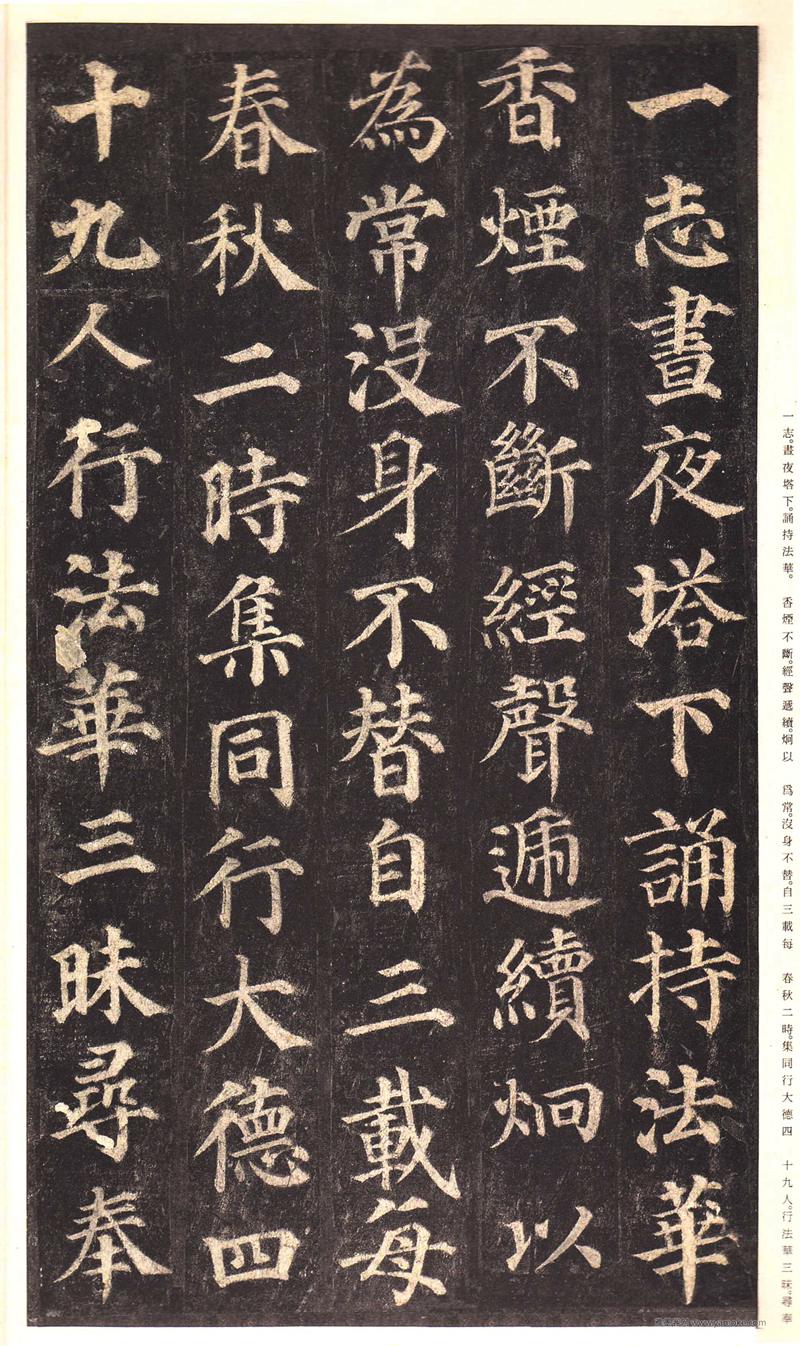 一志晝夜塔下誦持法華
香煙不斷經聲遞續炯以
為常沒身不替自三載每
春秋二時集同行大德四
十九人行法華三昧尋奉
一志。晝夜塔下。誦持法華。 香煙不斷。經聲遞續。炯以 爲常。沒身不替。自三載每 春秋二時。集同行大德四 十九人。行法華三昧。尋奉
www.yamoke.com